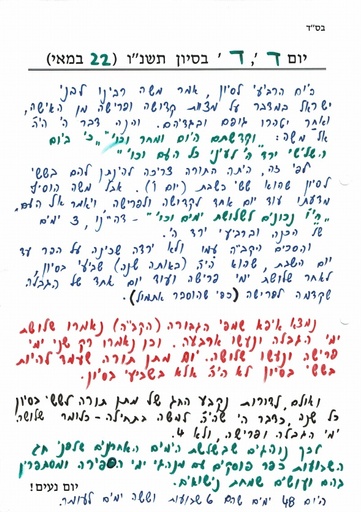 בס"ד
יום ד', ד' בסיון תשנ"ו (22 במאי)
ביום הרביעי לסיון, אמר משה רבינו לבני
ישראל במדבר על מצות קדושה ופרישה מן האישה,
ואחר יטהרו גופם ובגדיהם. והנה דבר ה' היה
אל משה: "וקדשתם היום ומחר וכו'" "כי ביום
השלישי ירד ה' לעיני כל העם וכו'"
לפי זה, היתה התורה צריכה להינתן להם בששי
לסיון שהוא ששי בשבת (יום ו'). אבל משה הוסיף
מדעתו עוד יום אחד לקדושה ולפרישה, ויאמר אל העם:
"היו נכונים לשלושת ימים וכו'" - דהיינו, 3 ימים
של הכנה וברביעי ירד ה'.
והסכים הקב"ה עמו ולא ירדה שכינה על ההר עד
יום השבת, שהוא היה (באותה שנה) שביעי בסיון,
לאחר שלושת ימי פרישה ועוד יום אחד של הגבלה
שקדמה לפרישה (כפי שהוספר אתמול).
נמצא איפא שמפי הגבורה (הקב"ה) נאמרו שלושת
ימי הגבלה ונעשו ארבעה. וכן נאמרו רק שני ימי
פרישה ונעשו שלושה. יום מתן תורה שעמד להיות
בששי בסיון לא היה אלא בשביעי בסיון.
ואולם, לדורות נקבע החג של מתן תורה לששי בסיון
כל שנה, כדבר ה' שהיה למשה בתחילה - כלומר שלושה
ימי הגבלה ופרישה, ולא 4.
לכך נוהגים שבשלושת הימים האחרונים שלפני חג
השבועות כבר פוסקים עם מנהגי ימי הספירה ומסתפרין
בהם ועושים שמחת נישואים.
יום נעים!
היום 48 ימים שהם 6 שבועות וששה ימים לעומר.